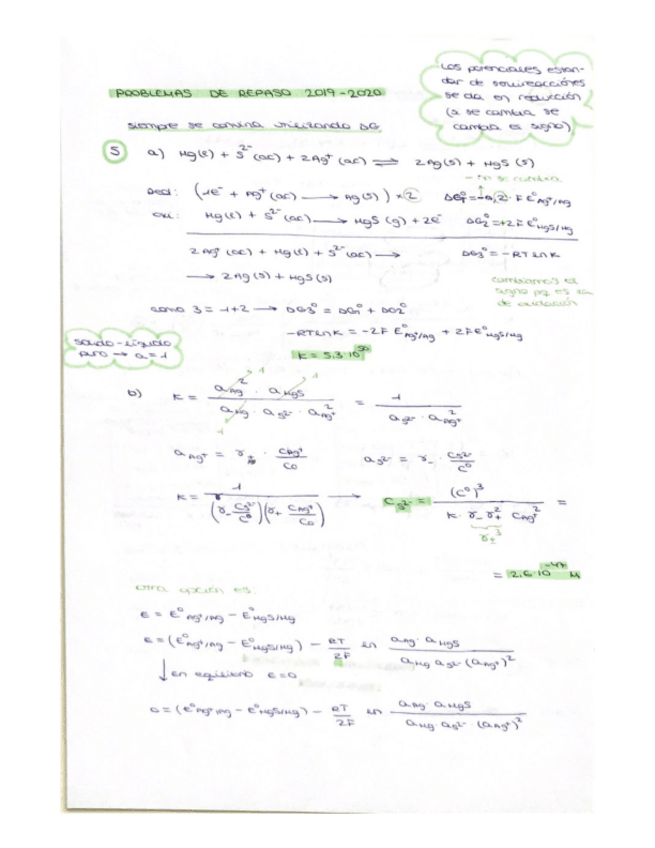 Los potenciales están-
dar de semirreacciones
se da en reducción
(si se cambia se
cambia el signo)
PROBLEMAS DE REPASO 2019-2020
siempre se combina utilizando ΔG
5 a) Hg(l) + S²⁻(ac) + 2Ag⁺(ac) ⇌ 2Ag(s) + HgS(s)
Red: (1e⁻ + Ag⁺(ac) → Ag(s)) × 2 ΔG₁⁰ = -2·F E⁰Ag⁺/Ag
Oxi: Hg(l) + S²⁻(ac) → HgS(s) + 2e⁻ ΔG₂⁰ = +2F E⁰HgS/Hg
2Ag⁺(ac) + Hg(l) + S²⁻(ac) → ΔG₃⁰ = -RT ln K
→ 2Ag(s) + HgS(s)
cambiamos el
signo pq es
de oxidación
como 3 = 1+2 → ΔG₃⁰ = ΔG₁⁰ + ΔG₂⁰
-RT ln K = -2F E⁰Ag⁺/Ag + 2F E⁰HgS/Hg
sólido-líquido
puro → a=1
K = 5.3·10⁵⁰
b) K = a²Ag · aHgS / aHg · aS²⁻ · a²Ag⁺ = 1 / aS²⁻ · a²Ag⁺
aAg⁺ = γ± · CAg⁺/C₀ aS²⁻ = γ₋ · CS²⁻/C⁰
K = 1 / (γ₋ CS²⁻/C⁰)(γ₊ CAg⁺/C₀) → CS²⁻ = (C⁰)³ / K · γ₋ γ₊² C²Ag⁺ =
γ±³
= 2,6·10⁻⁴⁷ M
otra opción es:
E = E⁰Ag⁺/Ag - E⁰HgS/Hg
E = (E⁰Ag⁺/Ag - E⁰HgS/Hg) - RT/2F ln aAg · aHgS / aHg aS²⁻ · (aAg⁺)²
↓ en equilibrio E=0
0 = (E⁰Ag⁺/Ag - E⁰HgS/Hg) - RT/2F ln aAg · aHgS / aHg · aS²⁻ · (aAg⁺)²